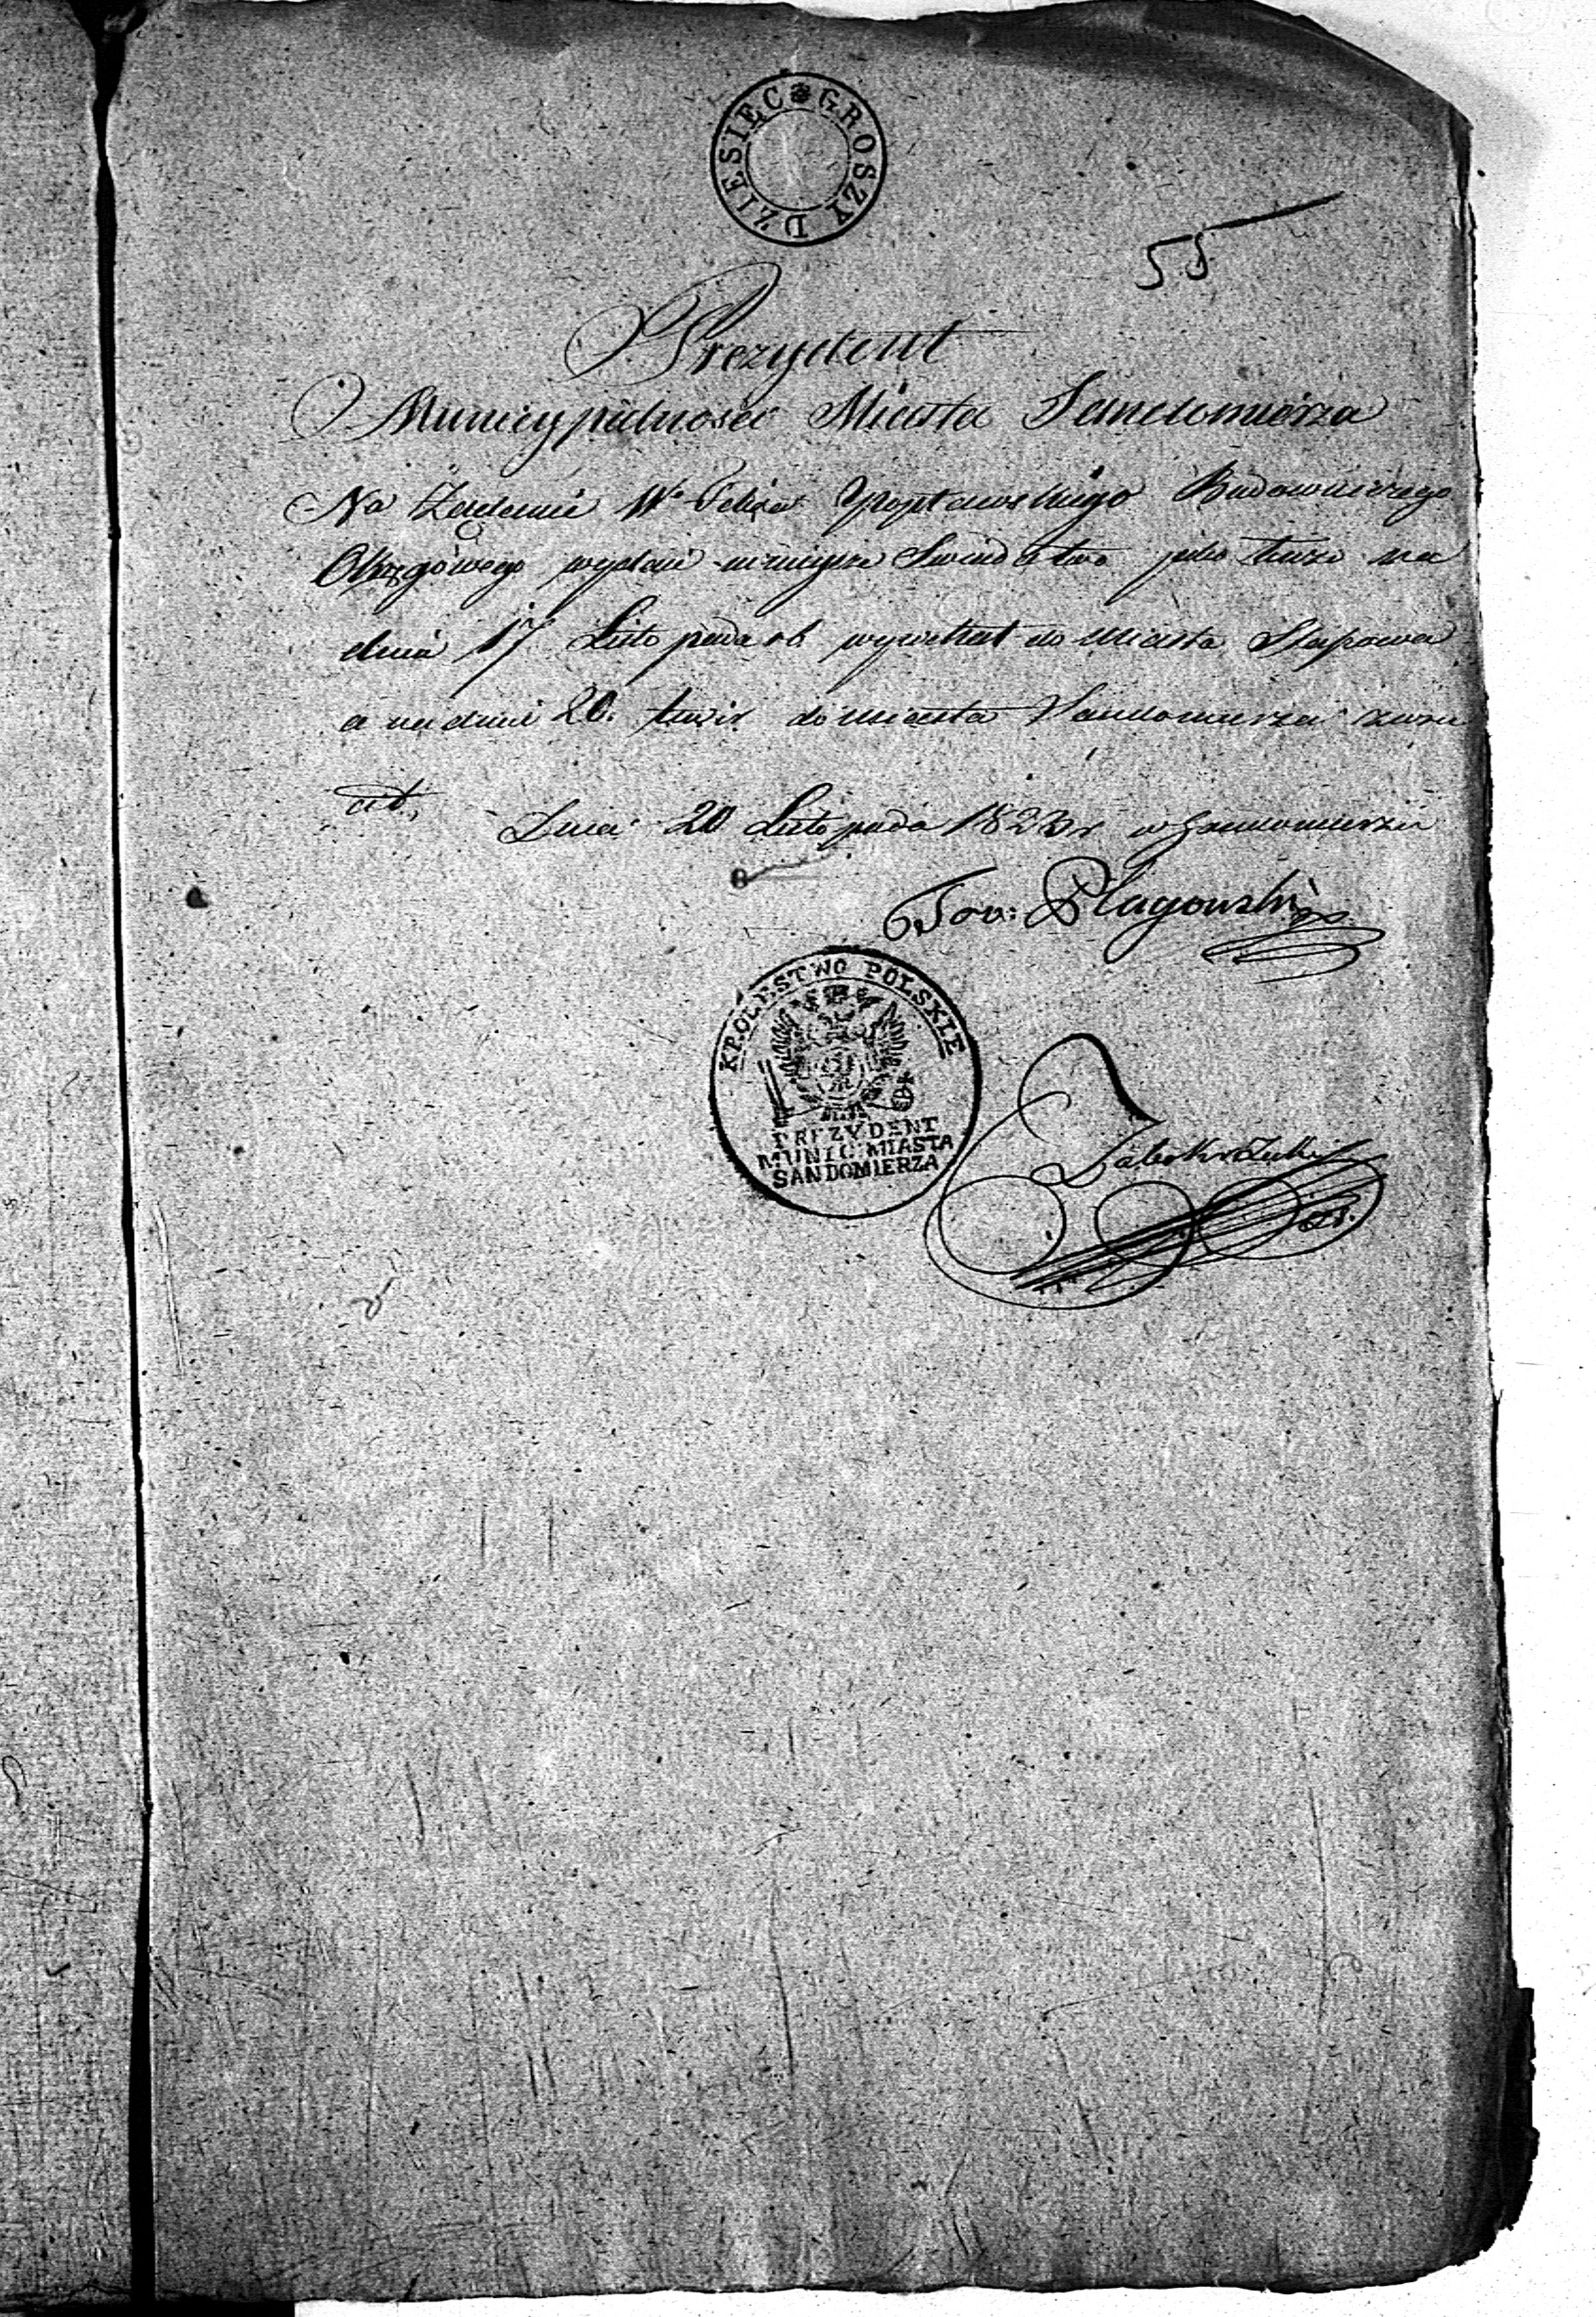 DZIESIĘC GROSZY
55
Prezydent
Municypalności Miasta Sandomierza
Na Żądanie W° Felixa Popławskiego Budowniczego
Obwgówego wydaie ninieysze Swiadectwo jako tenże na
dniu 17 Listopada rb wyjechał do Miasta Słupowa
a na dniu 20. tmr. do miasta Sandomierza zwró
cił,
Dnia 20 Listopada 1823r w Sandomierzu
Plagowski
KRÓLESTWO POLSKIE
PREZYDENT
MUNIC: MIASTA
SANDOMIERZA